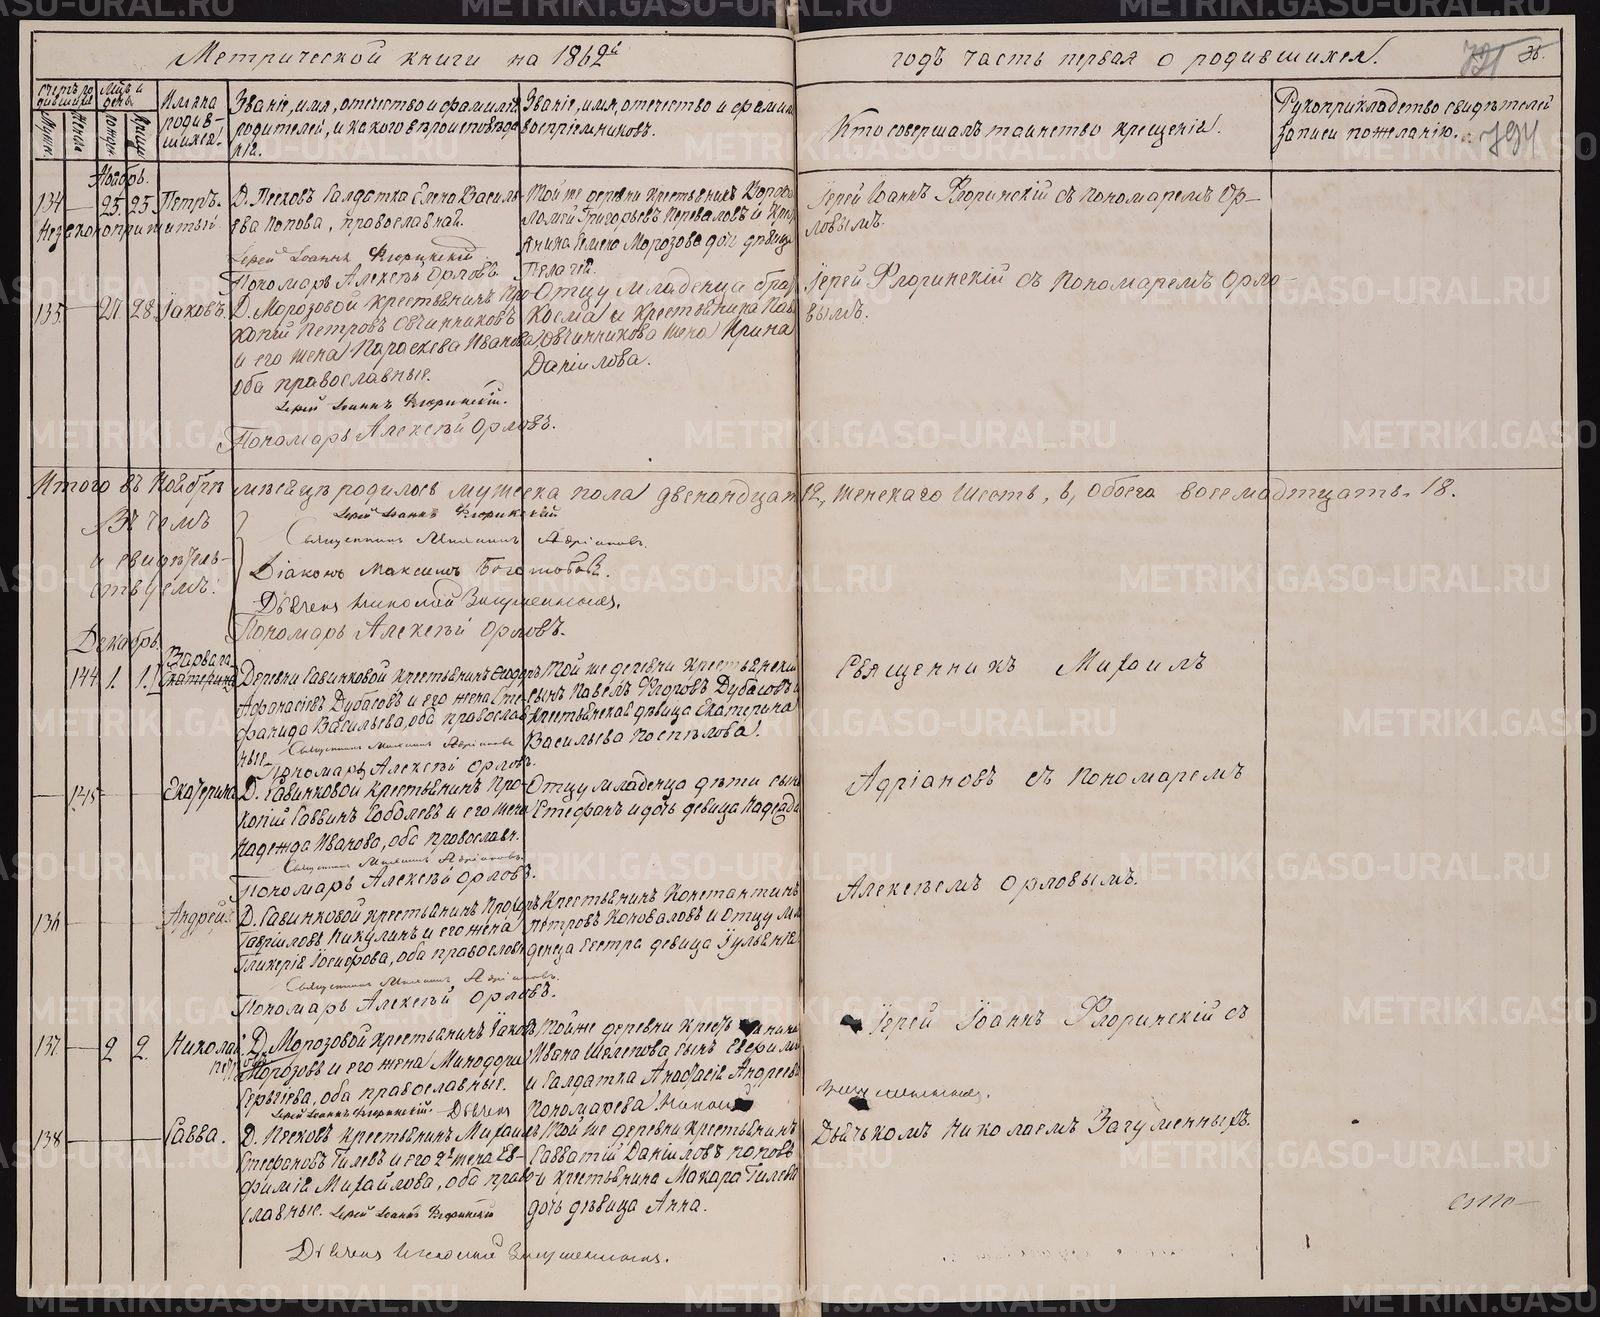 Метрической книги на 1862й
годъ часть первая о родившихся.
Счетъ родившихся
Мѣц. и день.
Имена родившихся.
Званіе, имя, отечество и фамилія
родителей, и какого вѣроисповѣда
нія.
Званіе, имя, отечество и фамилія
воспріемниковъ.
Кто совершалъ таинство крещенія.
Рукоприкладство свидѣтелей
записи по желанію.
794
Ноябрь.
134 25. 25 Петръ.
незаконоприжитый
Д. Песковъ Салдатка Елена Василь
ева Попова, православной.
Іерей Іоаннъ Флоринскій
Пономарь Алексѣй Орловъ.
Той же деревни крестьянинъ Варфо
ломей Григорьевъ Переваловъ и
Морозова дочь дѣвица
Пелагея.
Іерей Іоаннъ Флоринскій съ пономаремъ Ор-
ловымъ.
135 27 28 Іаковъ.
Д. Морозовой крестьянинъ Про-
копій Петровъ Овчинниковъ
и его жена Параскева Иванова,
оба православные.
Іерей Іоаннъ Флоринскій.
Пономарь Алексѣй Орловъ.
Отцу младенца братъ
Косма и крестьянина Пав
Овчинникова жена Ирина
Даніилова.
Іерей Флоринскій съ Пономаремъ Орло-
вымъ.
Итого въ Ноябрѣ мѣсяцѣ родилось мужеска пола двенандцать 12, женскаго шесть, 6, обоего восемнадтцать. 18.
Въ чемъ
и свидѣтель-
ствуемъ:
Іерей Іоаннъ Флоринскій
Священникъ Михаилъ Адріановъ.
Діаконъ Максимъ Богомоловъ.
Дьячекъ Николай Загуменныхъ.
Пономарь Алексѣй Орловъ.
Декабрь.
144 1. 1. Варвара
Екатерина
Деревни Савинковой крестьянинъ Ѳедоръ
Афанасіевъ Дубасовъ и его жена Сте-
фанида Васильева, оба православ
ные.
Священникъ Михаилъ Адріановъ
Пономарь Алексѣй Орловъ.
Той же деревни крестьянскій
сынъ Павелъ Ѳедоровъ Дубасовъ и
крестьянская дѣвица Екатерина
Васильева Поспѣлова.
Священникъ Михаилъ
145 Екатерина
Д. Савинковой крестьянинъ Про-
копій Саввинъ Соболевъ и его жена
Надежда Иванова, оба православн.
Священникъ Михаилъ Адріановъ.
Пономарь Алексѣй Орловъ.
Отцу младенца дѣти сынъ
Стефанъ и дочь девица Надежда
Адріановъ съ пономаремъ
136 Андрей.
Д. Савинковой крестьянинъ Прохоръ
Гавриловъ Никулинъ и его жена
Гликерія Іосифова, оба православн
Священникъ Михаилъ Адріановъ.
Пономарь Алексѣй Орловъ.
Крестьянинъ Константинъ
Петровъ Коноваловъ и отцу мла
денца сестра девица Іульянія
Алексѣемъ Орловымъ.
137 2 2. Николай
Д. Морозовой крестьянинъ Іаковъ
Морозовъ и его жена Минодора
Сергѣева, оба православные.
Іерей Іоаннъ Флоринскій. Дьячекъ
Той же деревни
Ивана Шелепова сынъ
и Салдатка Анастасія Андреева
Пономарева
Іерей Іоаннъ Флоринскій съ
Загуменныхъ.
138 Савва.
Д. Песковъ крестьянинъ Михаилъ
Стефановъ Гилевъ и его 2я жена Ев-
фимія Михайлова, оба право
славные. Іерей Іоаннъ Флоринскій
Дьячекъ Николай Загуменныхъ.
Той же деревни крестьянинъ
Савватій Даніиловъ Поповъ
и крестьянина Макара Гилева
дочь дѣвица Анна.
Дьячькомъ Николаемъ Загуменныхъ.
METRIKI.GASO-URAL.RU